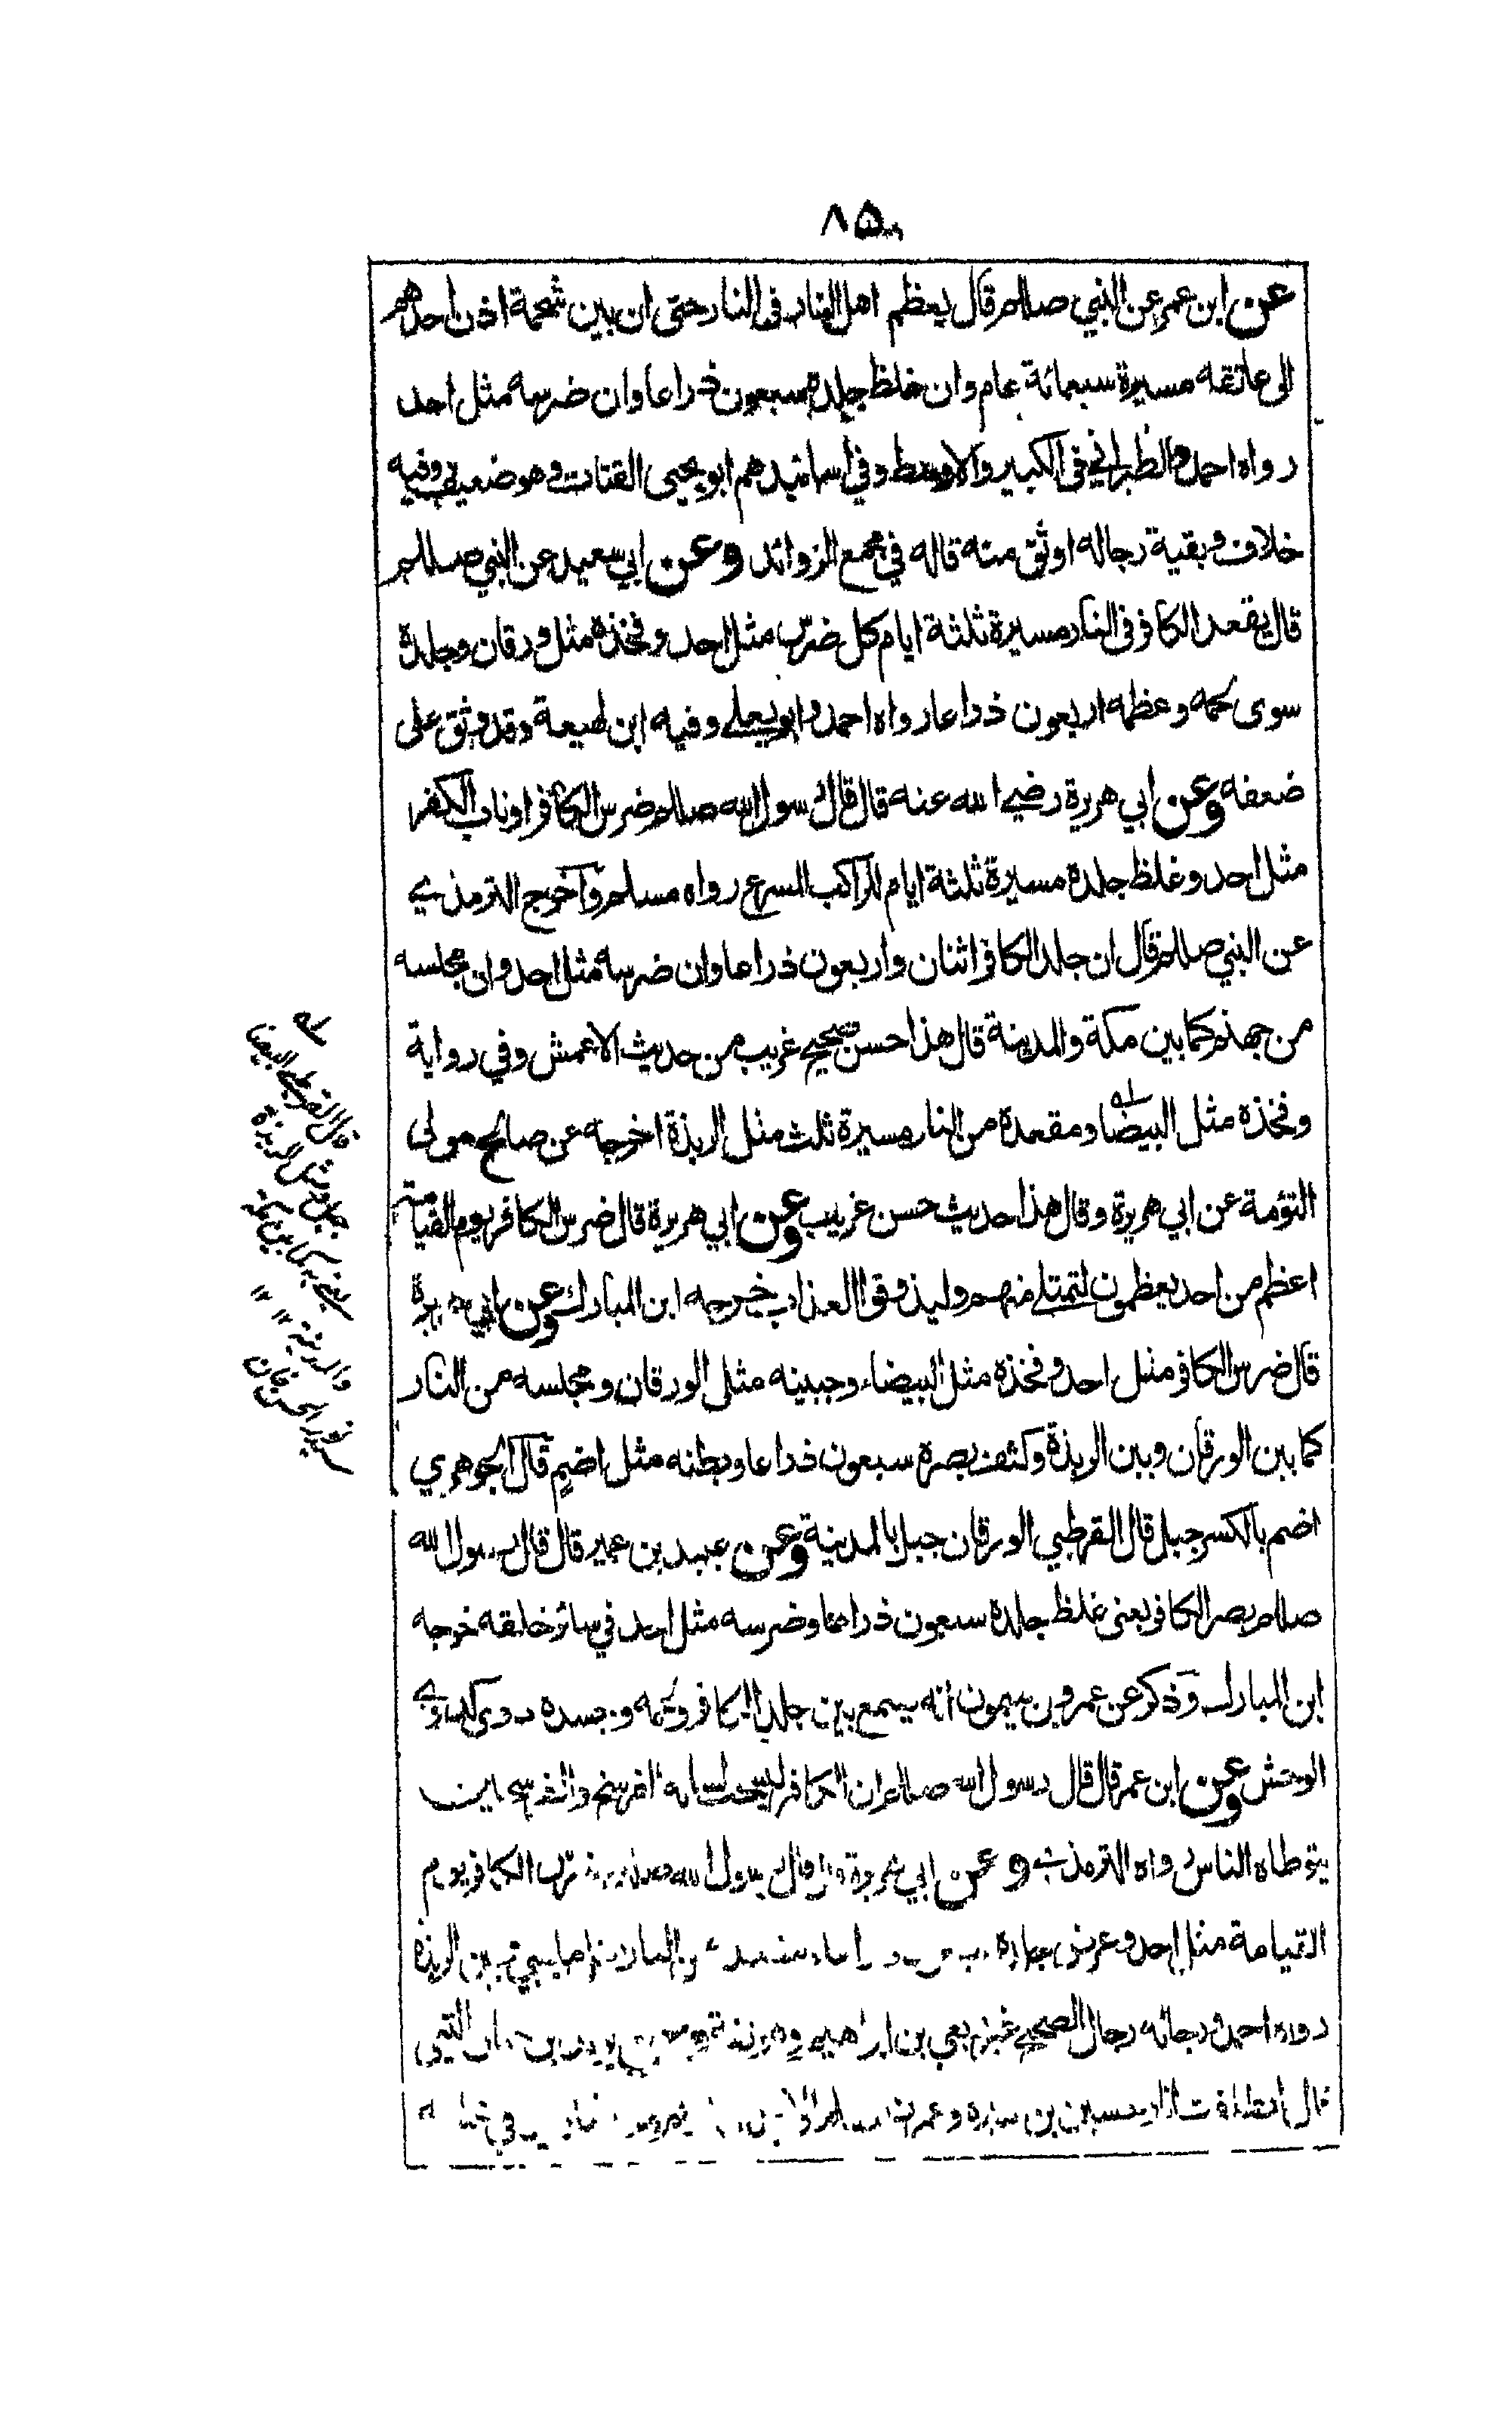 ٨٥
عن ابن عمر عن النبي صللم قال يعظم اهل النار فى النار حتى ان بين شحمة اذن احدهم
الى عاتقه مسيرة سبعمائة عام وان غلظ جلده سبعون ذراعا وان ضرسه مثل احد
رواه احمد والطبراني فى الكبير والاوسط وفي اسانيدهم ابو يحيى القتات وهو ضعيف وفيه
خلاف وبقية رجاله اوثق منه قاله في مجمع الزوائد وعن ابي سعيد عن النبي صللم
قال يقعد الكافر فى النار مسيرة ثلثة ايام كل ضرس مثل احد وفخذه مثل ورقان وجلده
سوى لحمه وعظمه اربعون ذراعا رواه احمد وابو يعلى وفيه ابن لهيعة وقد وثق على
ضعفه وعن ابي هريرة رضي الله عنه قال قال رسول الله صللم ضرس الكافر او ناب الكفر
مثل احد وغلظ جلده مسيرة ثلثة ايام للراكب السرع رواه مسلم وآخرج الترمذي
عن النبي صللم قال ان جلد الكافر اثنان واربعون ذراعا وان ضرسه مثل احد وان مجلسه
من جهنم كما بين مكة والمدينة قال هذا حسن صحيح غريب من حديث الاعمش وفي رواية
وفخذه مثل البيضا ومقعده من النار مسيرة ثلث مثل الربذة اخرجه عن صالح مولى
التؤمة عن ابي هريرة وقال هذا حديث حسن غريب وعن ابي هريرة قال ضرس الكافر يوم القيامة
اعظم من احد يعظمون لتمتلئ منهم وليذوقوا العذاب خرجه ابن المبارك وعن ابي هريرة
قال ضرس الكافر مثل احد وفخذه مثل البيضاء وجبينه مثل الورقان ومجلسه من النار
كما بين الورقان وبين الربذة وكثف بصره سبعون ذراعا وبطنه مثل اضم قال الجوهري
اضم بالكسر جبل قال القرطبي الورقان جبل بالمدينة وعن عبيد بن عمير قال قال رسول الله
صللم بصر الكافر يعنى غلظ جلده سبعون ذراعا وضرسه مثل احد في سائر خلقه خرجه
ابن المبارك وذكر عن عمرو بن ميمون انه يسمع بين جلد الكافر ولحمه وجسده دوى كدوي
الوحش وعن ابن عمر قال قال رسول الله صللم ان الكافر ليسحب لسانه الفرسخ والفرسخين
يتوطاه الناس رواه الترمذي وعن ابي هريرة قال قال رسول الله ضرس الكافر يوم
القيامة مثل احد وعرض جلده من النار ما بيني وبين الربذة
رواه احمد ورجاله رجال الصحيح غير ربعي بن ابراهيم وهو ثقة
قال
له
قال القرطبي البيضا
جبل مثل الربذة
يعني بہ كما بين مكة
والمدينة ١٢ ١٢
سيد نور الحسن خان